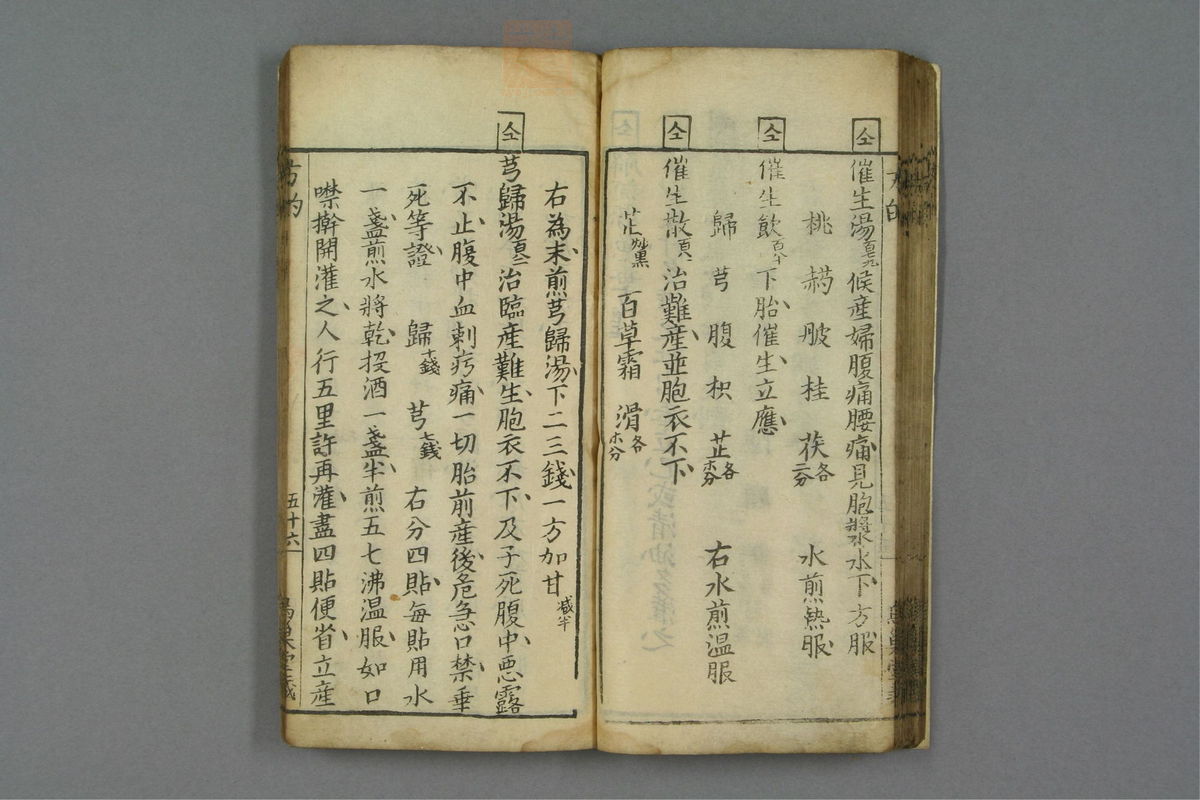 소
催生湯 候産婦腹痛腰痛見胞漿水下方服
桃 赤芍 牧 桂 茯各 水煎熱服
소
催生飲 下胎催生立應
歸 芎 腹 枳 芷各 右水煎温服
소
催生散 治難産並胞衣不下
芷炒黑 百草霜 滑各
右為末煎芎歸湯下二三錢一方加甘減半
소
芎歸湯 治臨産難生胞衣不下及子死腹中悪露
不止腹中血刺㽲痛一切胎前産後危急口禁垂
死等證 歸十錢 芎七錢 右分四貼每貼用水
一盞煎水將乾投酒一盞半煎五七沸温服如口
噤擀開灌之人行五里許再灌盡四貼便省立産
方的
五十六